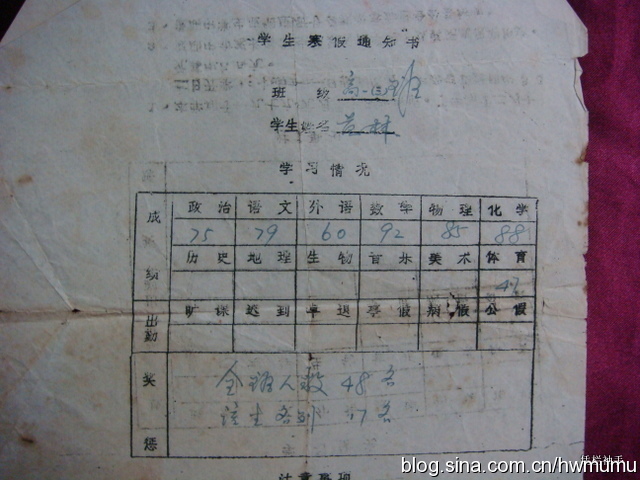 学生寒假通知书
班 级 高一
学生姓名
学习情况
成绩 政治 语文 外语 数学 物理 化学
75 79 60 92 85 88
历史 地理 生物 音乐 美术 体育
出勤 旷课 迟到 早退 事假 病假 公假
奖惩 全班人数 48名
该生名列 17名
注意事项
blog.sina.com.cn/hwmumu